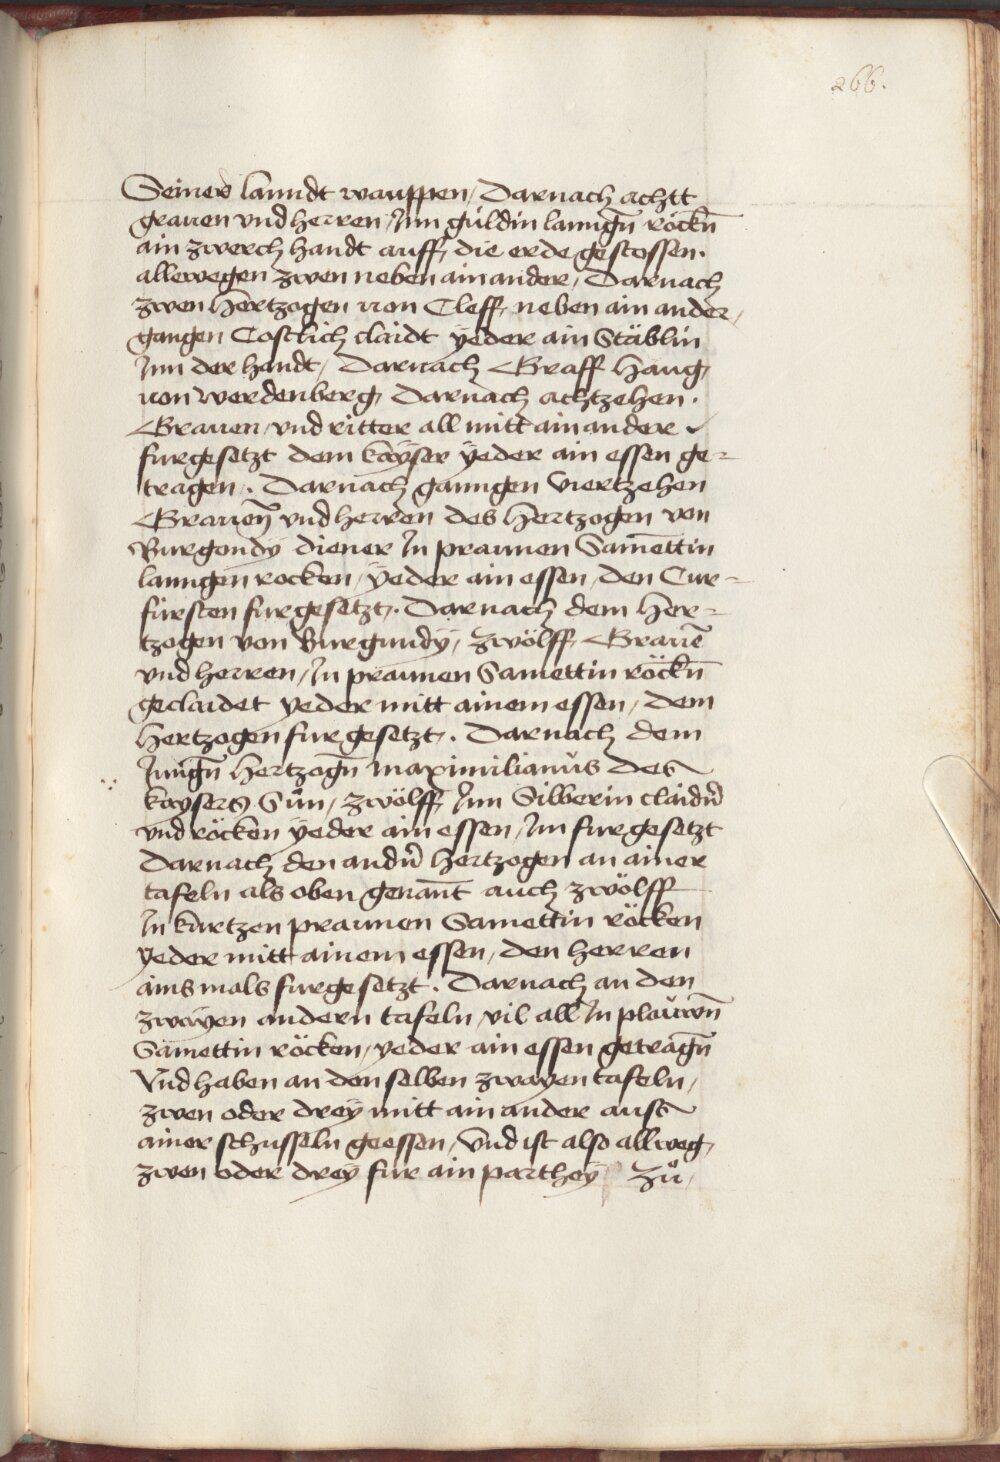 266.
Seiner lanndt wauppen / Darnach achtt
grauen vnd herren / Jnn guldin lanngn̄ röckn̄
ain zwerch handt auff die erde gestossen.
allewegen zwen neben ain ander / Darnach
zwen Hertzogen von Cleff neben ain ander /
gangen Costlich claidt yeder ain Stäblin
Jnn der handt / Darnach Graff Haug
von werdenberg Darnach achtzehen.
Grauen / vnd ritter all mitt ain ander
furgesetzt dem kayser yeder ain essen ge-
tragen. Darnach ganngen viertzehen
Grauen vnd herren des Hertzogen von
Burgondy diener Jn praunen Samettin
lanngen rocken / yeder ain essen / den Cur-
fürsten fur gesetzt. Darnach dem Her-
tzogen von Burgundy / zwölff Grauē
vnd herren / Jn praunen Samettin röckn̄
geclaidet yeder mitt ainem essen / dem
Hertzogen fur gesetzt. Darnach dem
Jungn̄ Hertzogn̄ maximilianus des
kaysers Sun / zwölff Jnn Silberin claidn̄
vnd röcken yeder ain essen / Jm fur gesetzt
Darnach den andn̄ Hertzogen an ainer
tafeln als oben genan̄t auch zwölff
Jn kurtzen praunen Samettin röcken
yeder mitt ainem essen / den herren
ains mals fur gesetzt. Darnach an den
zwayen andern tafeln / vil all Jn plauwn̄
Samettin röcken / yeder ain essen getragn̄
Vnd haben an den selben zwayen tafeln /
zwen oder drey mitt ain ander auss
ainer schusseln geessen / Vnd ist also allweg
zwen oder drey fur ain parthey Zů /